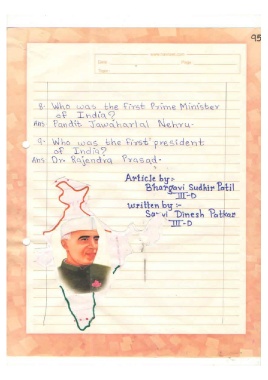 95
8. Who was the first Prime Minister
of India?
Ans Pandit Jawaharlal Nehru.
9. Who was the First president
of India?
Ans Dr. Rajendra Prasad.
Article by:-
Bhargavi Sudhir Patil
III-D
written by :-
Sa-vi Dinesh Patkar
III-D